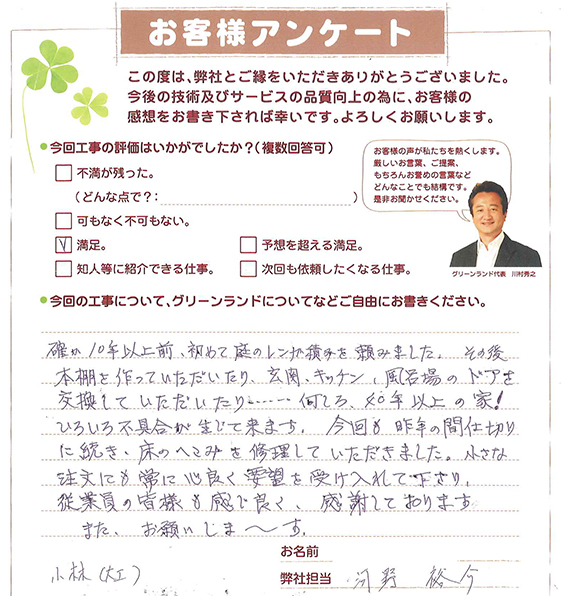 お客様アンケート
この度は、弊社とご縁をいただきありがとうございました。
今後の技術及びサービスの品質向上の為に、お客様の
感想をお書き下されば幸いです。よろしくお願いします。
●今回工事の評価はいかがでしたか?(複数回答可)
不満が残った。
(どんな点で?: )
可もなく不可もない。
満足。
予想を超える満足。
知人等に紹介できる仕事。
次回も依頼したくなる仕事。
お客様の声が私たちを熱くします。
厳しいお言葉、ご提案、
もちろんお誉めの言葉など
どんなことでも結構です。
是非お聞かせください。
グリーンランド代表 川村秀之
●今回の工事について、グリーンランドについてなどご自由にお書きください。
確か10年以上前、初めて庭のレンガ積みを頼みました。その後
本棚を作っていただいたり、玄関、キッチン、風呂場のドアを
交換していただいたり……何しろ、40年以上の家!
いろいろ不具合が生じて来ます。今回も昨年の間仕切り
に続き、床のへこみを修理していただきました。小さな
注文にも常に心良く要望を受け入れて下さり、
従業員の皆様も感じ良く、感謝しております。
また、お願いしま〜す。
お名前
小林(大工)
弊社担当 河野 裕介